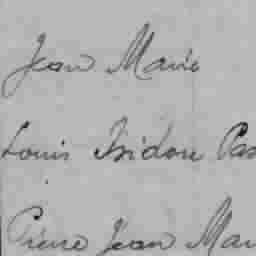 Jean Marie
Louis Isidore Pas
Pierre Jean Mar